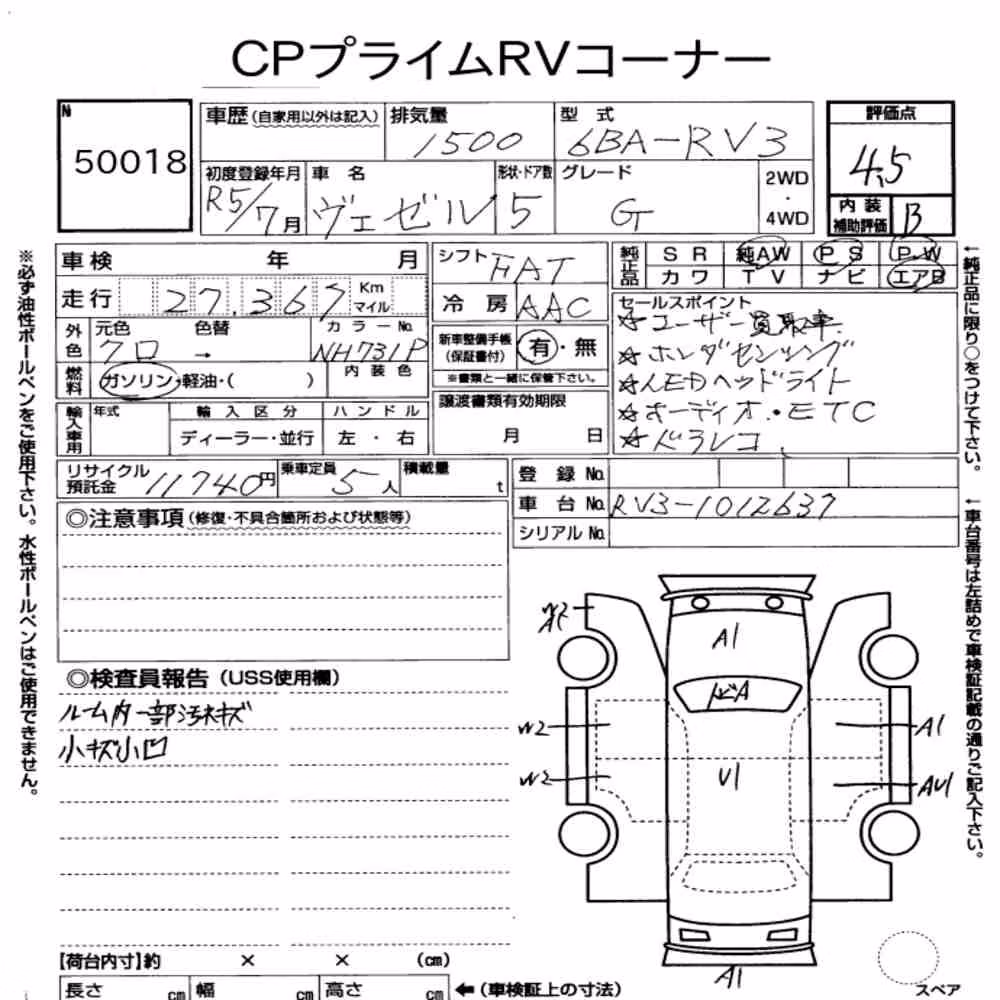 CPプライムRVコーナー
№ 50018
車歴 (自家用以外は記入) 排気量 1500 型 式 6BA-RV3 評価点 4.5
初度登録年月 R5/7月 車 名 ヴェゼル 形状・ドア数 5 グレード G 2WD ・ 4WD
内 装 補助評価 B
車検 年 月 シフト FAT 純正品 S R 純AW P S P.W
カワ T V ナビ エアB
走行 27,367 Km マイル 冷 房 AAC
外色 元色 クロ 色替 → カラーNo. NH731P
新車整備手帳 (保証書付) 有・無
※書類と一緒に保管下さい。
燃料 ガソリン・軽油・( ) 内 装 色
輸入車用 年式 輸 入 区 分 ハ ン ド ル
ディーラー・並行 左 ・ 右
譲渡書類有効期限
月 日
セールスポイント
☆ユーザー買取車
☆ホンダセンシング
☆LEDヘッドライト
☆オーディオ・ETC
☆ドラレコ
リサイクル預託金 11740円 乗車定員 5人 積載量 t
登 録 No.
車 台 No. RV3-1012637
シリアル No.
◎注意事項 (修復・不具合箇所および状態等)
◎検査員報告 (USS使用欄)
ルーム内一部汚れキズ
小キズ小凹
A1
トビA
W2
A1
W2
U1
AU1
A1
【荷台内寸】約 × × (cm)
長さ cm 幅 cm 高さ cm ←(車検証上の寸法)
スペア
※必ず油性ボールペンをご使用下さい。水性ボールペンはご使用できません。
←純正品に限り○をつけて下さい。
←車台番号は左詰めで車検証記載の通りご記入下さい。